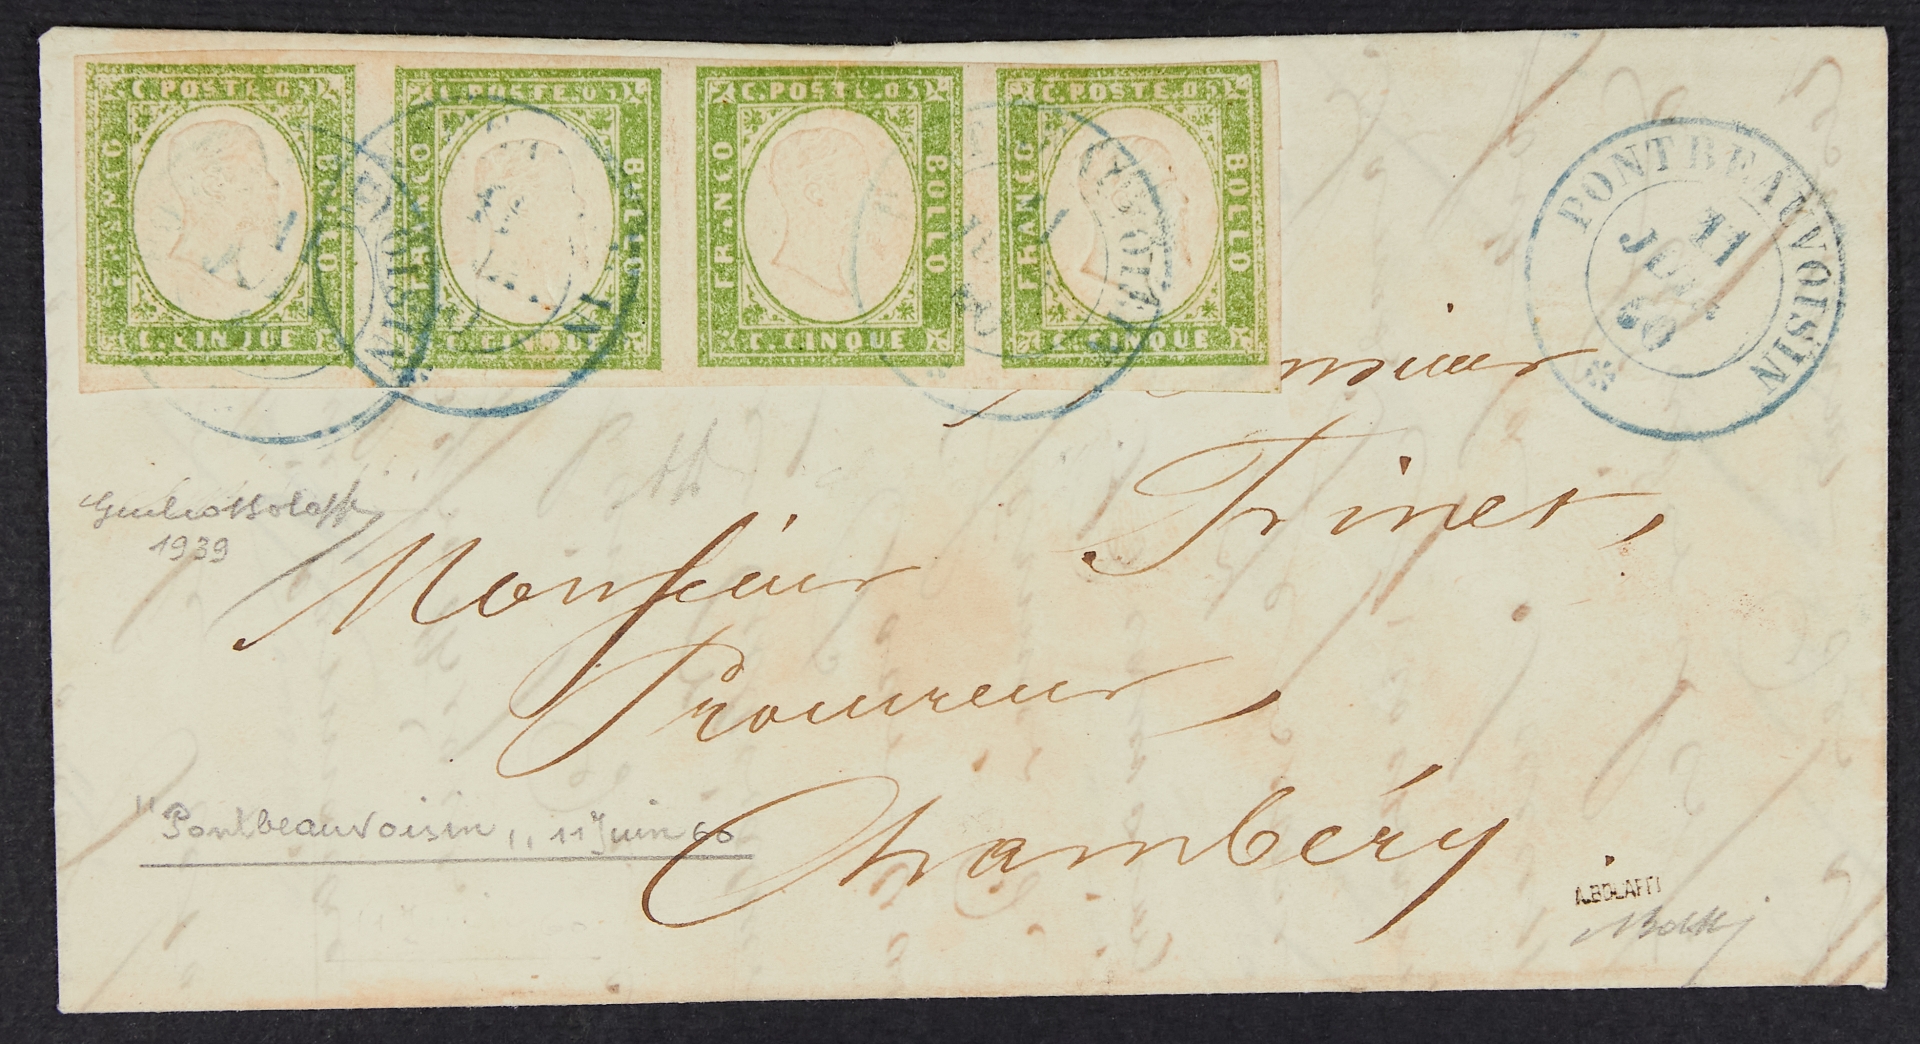 C. POSTE. 05
FRANCO
BOLLO
C. CINQUE
C. POSTE. 05
FRANCO
BOLLO
C. CINQUE
C. POSTE. 05
FRANCO
BOLLO
C. CINQUE
C. POSTE. 05
FRANCO
BOLLO
C. CINQUE
PONTBEAUVOISIN
11
60
Monsieur
Trinet,
Giulio Bolaffi
1939
Monsieur
Procureur,
"Pontbeauvoisin,, 11 Juin 60
Chambéry
A. BOLAFFI